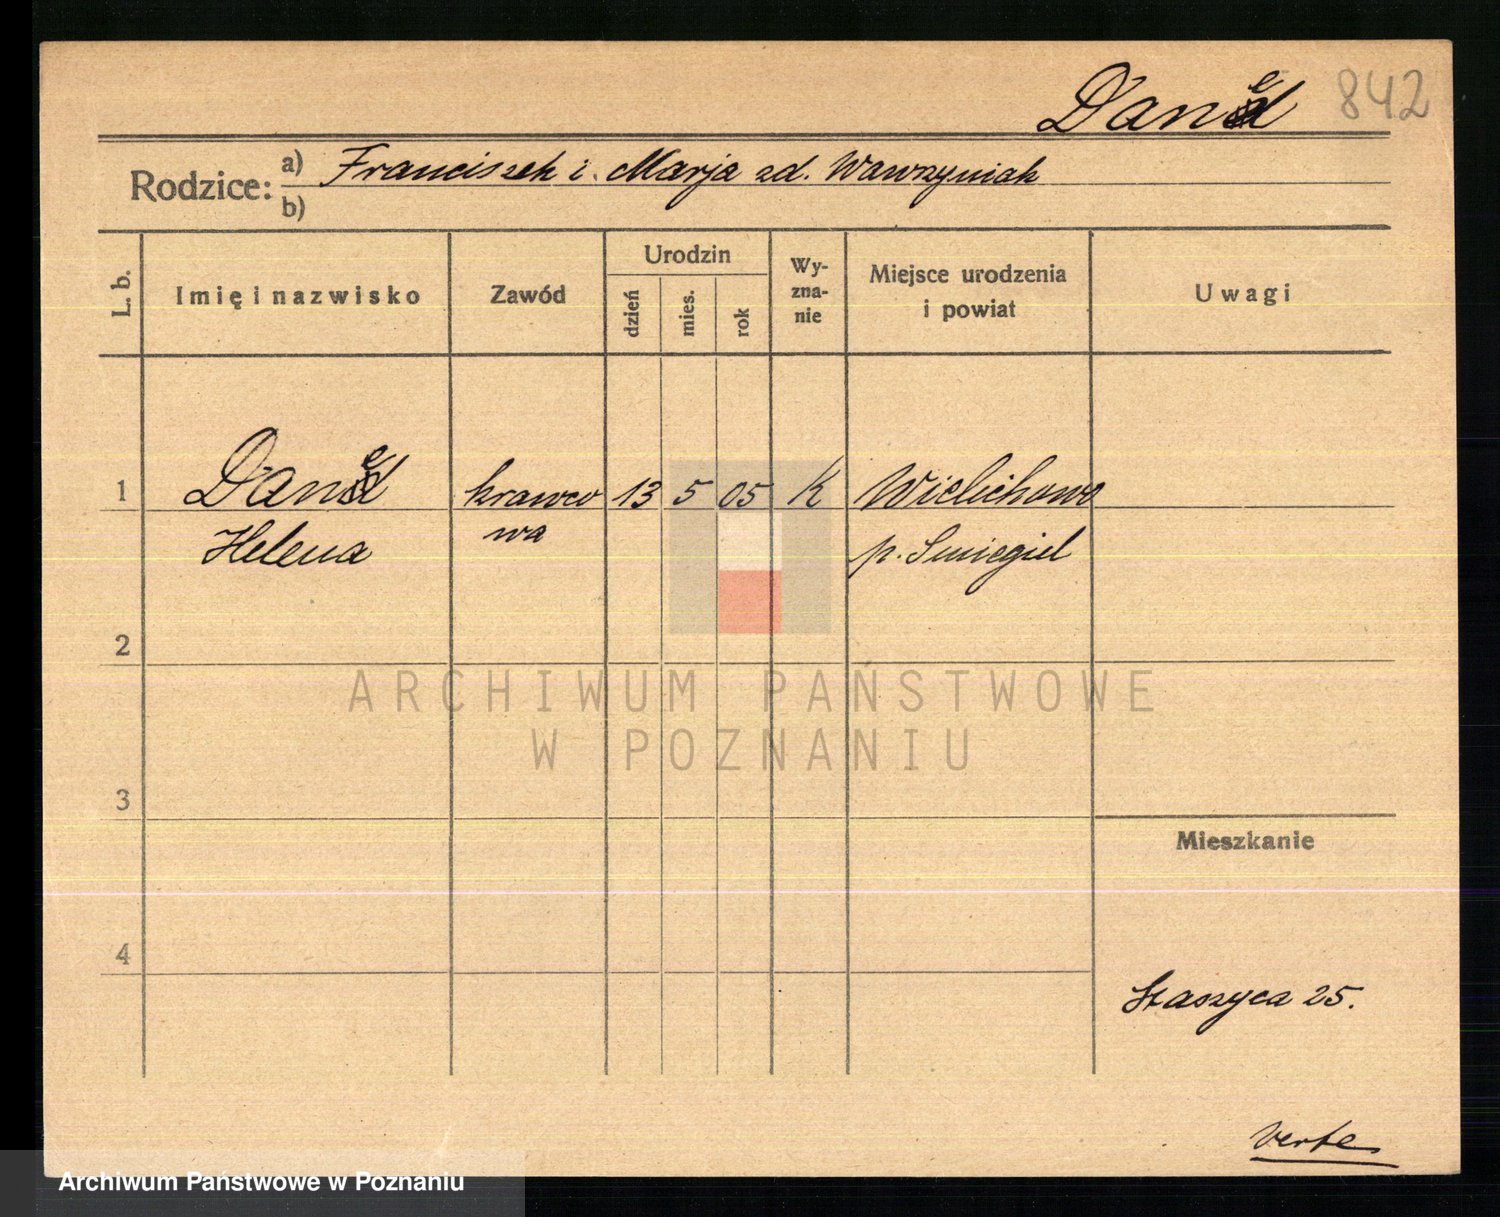 Daniel 842
Rodzice: a) Franciszek i. Marja zd. Wawrzyniak
b)
L. b. Imię i nazwisko Zawód Urodzin dzień mies. rok Wy-zna-nie Miejsce urodzenia i powiat Uwagi
1 Daniel krawco 13 5 05 K Wielichowo
Helena wa p. Śmiegiel
2
ARCHIWUM PAŃSTWOWE
W POZNANIU
3
Mieszkanie
4
Staszyca 25.
verte
Archiwum Państwowe w Poznaniu